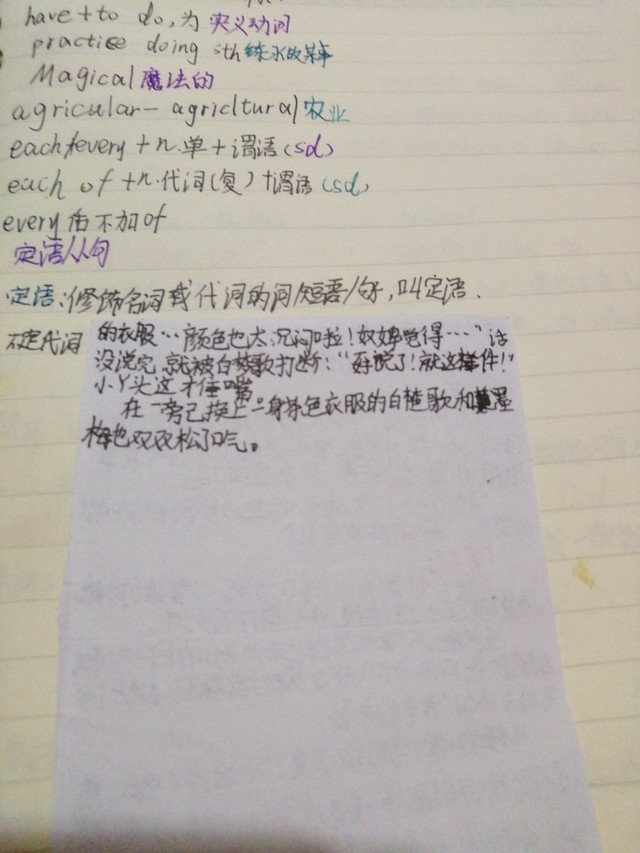 have+to do,为实义动词
practice doing sth 练习做某事
Magical 魔法的
agricular— agricltural 农业
each/every +n.单+谓语(sd)
each of +n.代词(复)+谓语(sd)
every后不加of
定语从句
定语:修饰名词或代词的词/短语/句,叫定语.
不定代词
的衣服…颜色也太沉闷啦!奴婢觉得…"话
没说完,就被白楚歌打断:"好说了!就这样件!"
小丫头这才住嘴
在一旁已换上一身 色衣服的白楚歌和 墨
梅也双双松了口气。